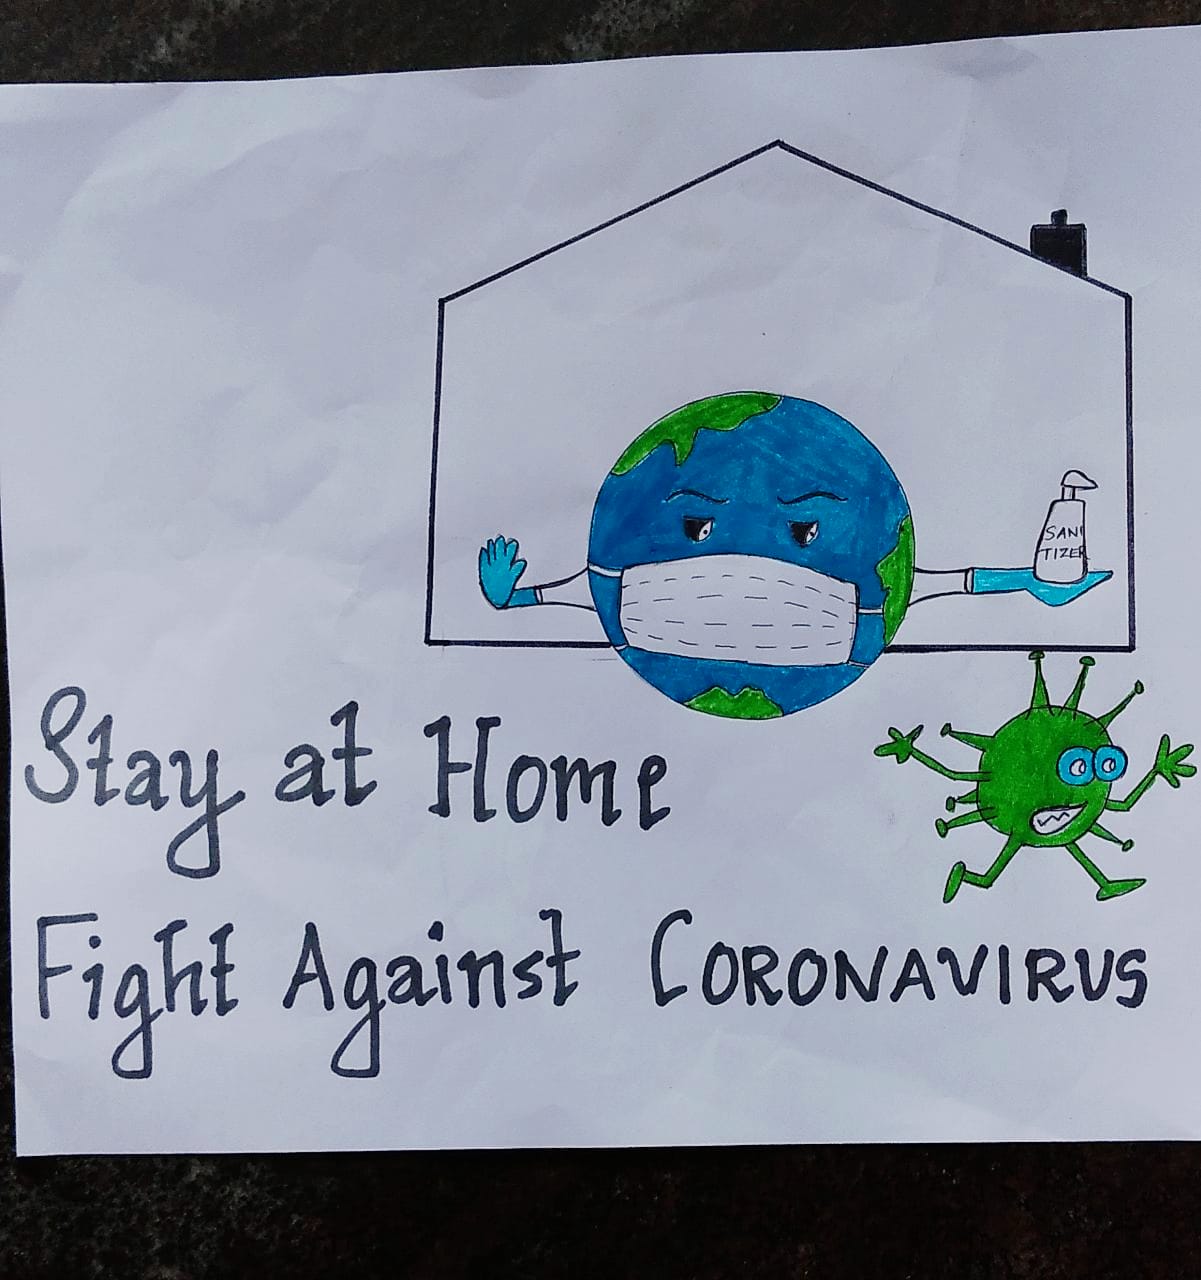 SANI
TIZER
Stay at Home
Fight Against CORONAVIRUS